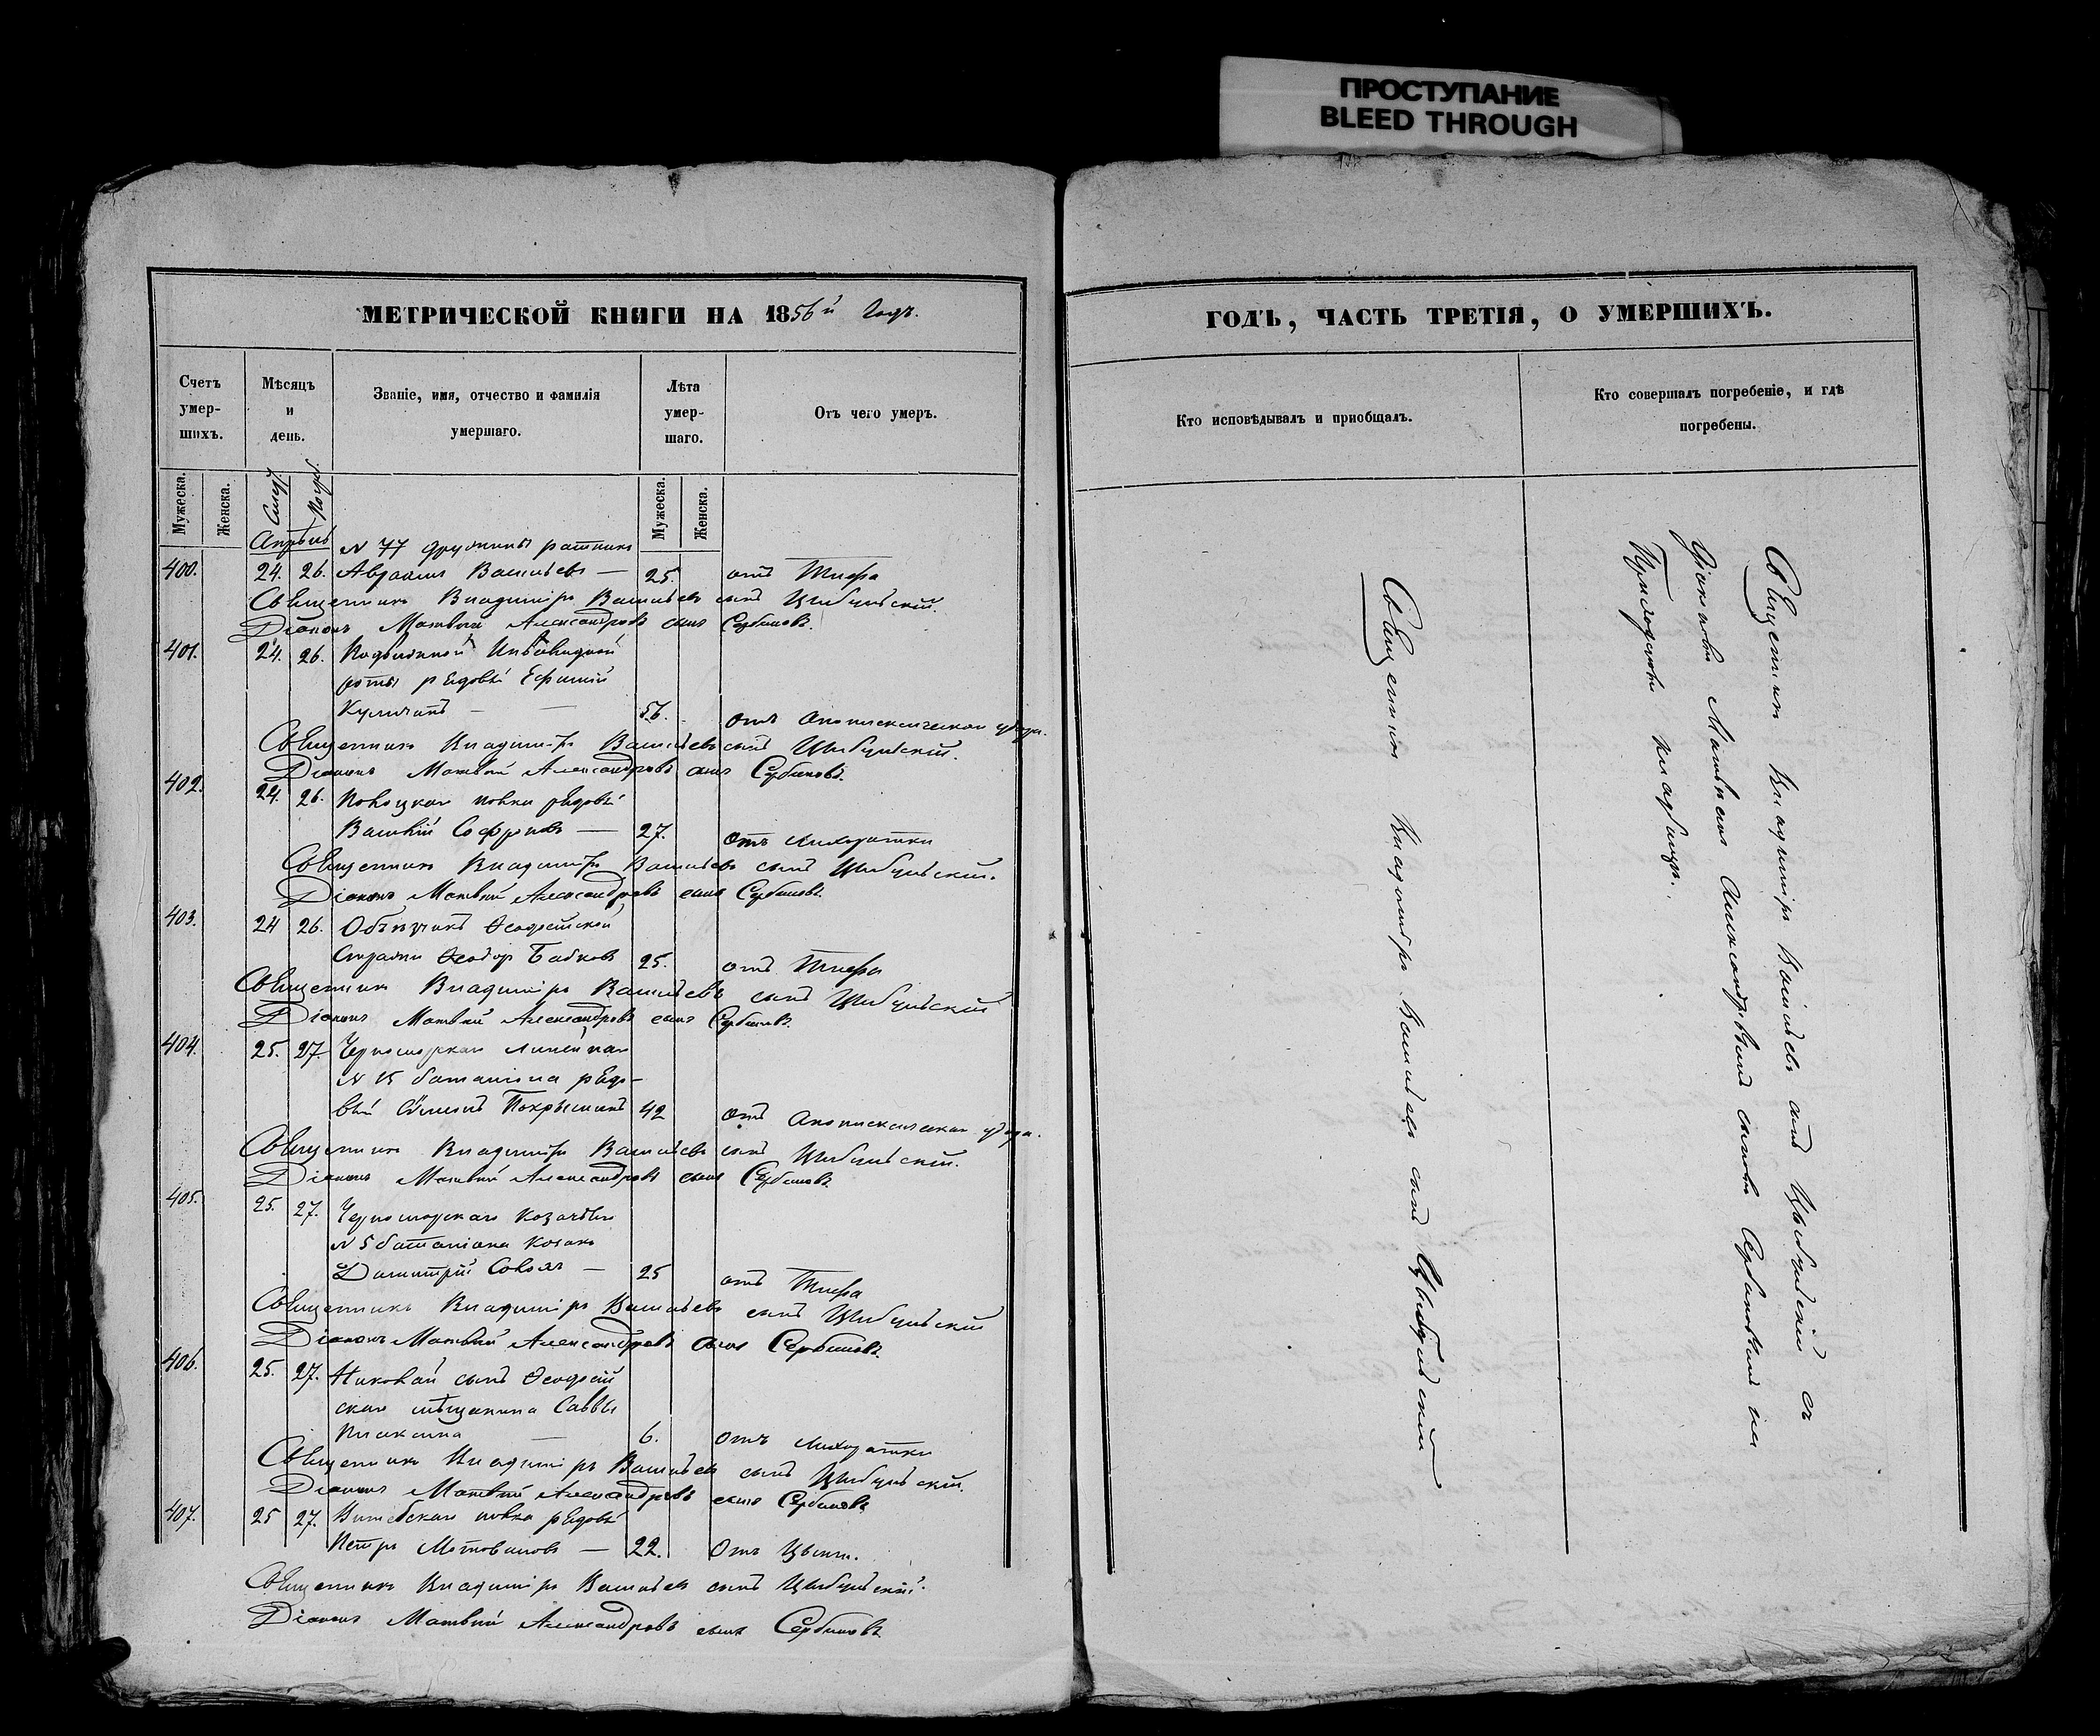 ПРОСТУПАНИЕ
BLEED THROUGH
МЕТРИЧЕСКОЙ КНИГИ НА 1856й Годъ.
Счетъ умер-шихъ.
Мѣсяцъ и день.
Званіе, имя, отчество и фамилія умершаго.
Лѣта умер-шаго.
Отъ чего умеръ.
Мужеска.
Женска.
Смерт.
Погр.
Мужеска.
Женска.
Апрѣль
№ 77 дружины ратникъ
400. 24. 26. Авраамъ Васильевъ — 25. отъ Тифа
Священникъ Владиміръ Васильевъ сынъ Цыбульскій.
Діаконъ Матвѣй Александровъ сынъ Сербиновъ.
401. 24. 26. Подвижной Инвалидной
роты рядовый Ефимій
56. отъ Апоплексическаго удара.
Священникъ Владиміръ Васильевъ сынъ Цыбульскій.
Діаконъ Матвѣй Александровъ сынъ Сербиновъ.
402. 24. 26. полка рядовый
Василій Софроновъ — 27. отъ лихорадки
Священникъ Владиміръ Васильевъ сынъ Цыбульскій.
Діаконъ Матвѣй Александровъ сынъ Сербиновъ.
403. 24 26. Объѣзчикъ Ѳеодосійской
Стражи Ѳеодоръ Бабковъ 25. отъ Тифа
Священникъ Владиміръ Васильевъ сынъ Цыбульскій
Діаконъ Матвѣй Александровъ сынъ Сербиновъ.
404. 25. 27. Черноморскаго линейнаго
№ 15 баталіона рядо-
вый Сѵмеонъ Покрышкинъ 42 отъ Апоплексическаго удара.
Священникъ Владиміръ Васильевъ сынъ Цыбульскій.
Діаконъ Матвѣй Александровъ сынъ Сербиновъ.
405. 25. 27. Черноморскаго Козачьяго
№ 5 баталіона Козакъ
Димитрій Соколъ — 25 отъ Тифа
Священникъ Владиміръ Васильевъ сынъ Цыбульскій
Діаконъ Матвѣй Александровъ сынъ Сербиновъ.
406. 25. 27. Николай сынъ Ѳеодосій
скаго мѣщанина Саввы
Плаксина — 6. отъ лихорадки
Священникъ Владиміръ Васильевъ сынъ Цыбульскій.
Діаконъ Матвѣй Александровъ сынъ Сербиновъ.
407. 25 27. Витебскаго полка рядовый
Петръ — 22. Отъ Цынги.
Священникъ Владиміръ Васильевъ сынъ Цыбульскій.
Діаконъ Матвѣй Александровъ сынъ Сербиновъ
ГОДЪ, ЧАСТЬ ТРЕТІЯ, О УМЕРШИХЪ.
Кто исповѣдывалъ и пріобщалъ.
Кто совершалъ погребеніе, и гдѣ погребены.
Священникъ Владиміръ Васильевъ сынъ Цыбульскій
Священникъ Владиміръ Васильевъ сынъ Цыбульскій съ
Діакономъ Матвѣемъ Александровымъ сыномъ Сербиновымъ на
кладбищѣ.